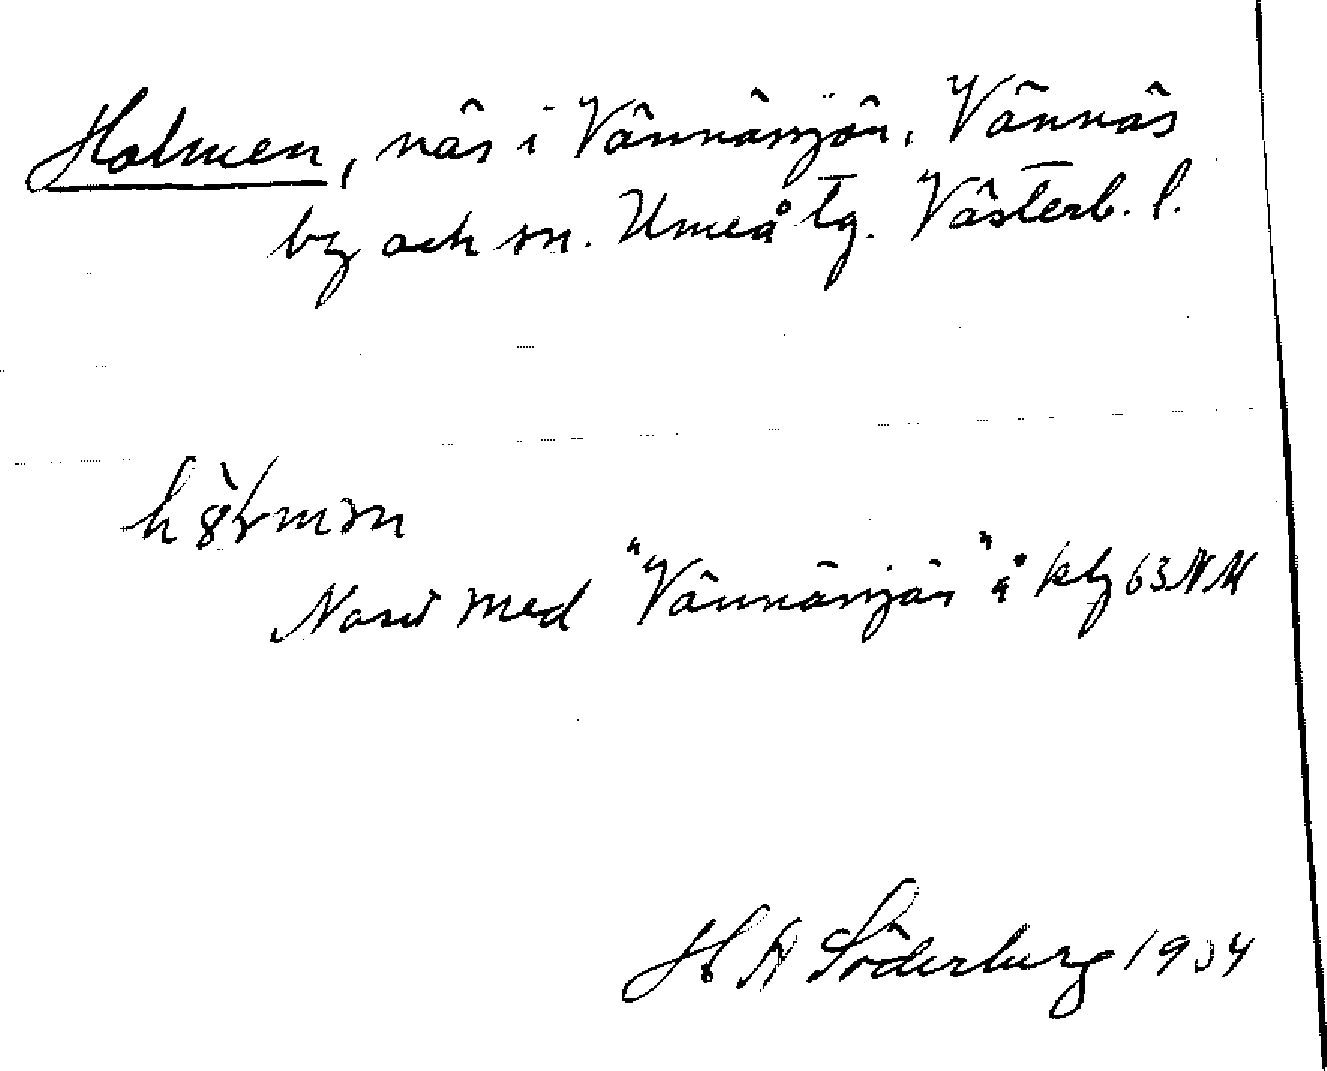 Holmen, näs i Vännäsjön, Vännäs
by och sn. Umeå tg. Västerb. l.
Nord med "Vännäsjön" å kbl 63 NM
H A Söderberg 1934